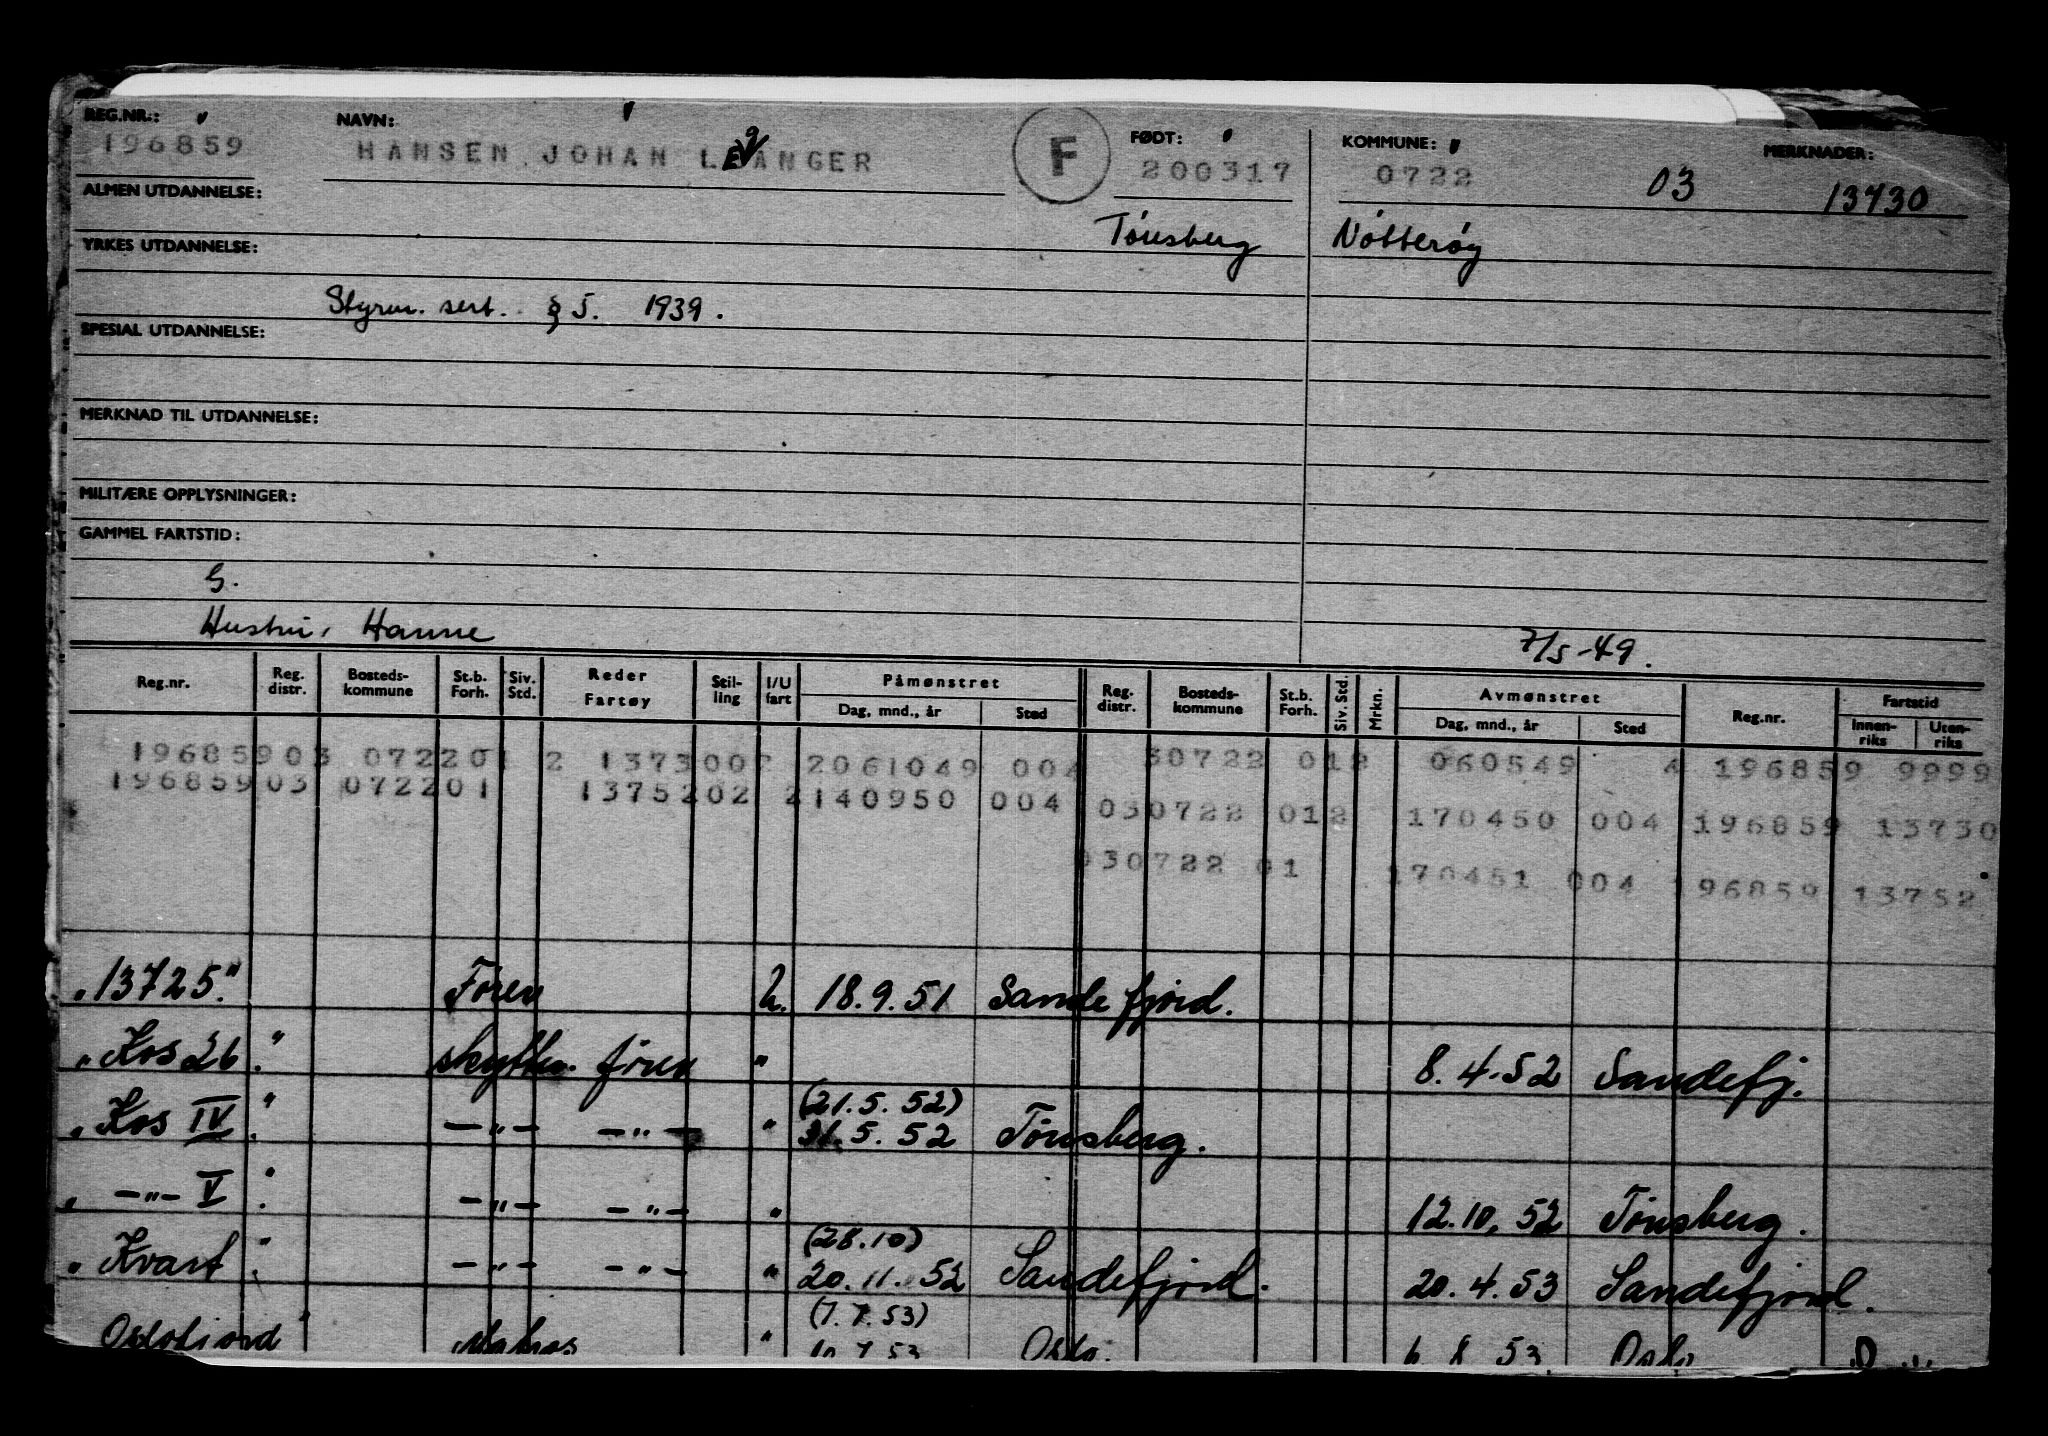 REG.NR.: NAVN: FØDT: KOMMUNE: MERKNADER:
196859 HANSEN JOHAN LEVANGER F 200317 0722 03 13730
ALMEN UTDANNELSE:
Tönsberg Nötteröy
YRKES UTDANNELSE:
Styrm. sert. § 5. 1939.
SPESIAL UTDANNELSE:
MERKNAD TIL UTDANNELSE:
MILITÆRE OPPLYSNINGER:
GAMMEL FARTSTID:
G.
Hustru, Hanne 7/5-49.
Reg.nr. Reg. distr. Bosteds-kommune St.b. Forh. Siv. Std. Reder Fartøy Stil-ling I/U fart Påmønstret Reg. distr. Bosteds-kommune St.b. Forh. Siv. Std. Mrkn. Avmønstret Reg.nr. Fartstid
Dag, mnd., år Sted Dag, mnd., år Sted Innen-riks Uten-riks
19685903 07220 2 137300 2061049 004 30722 012 060549 4 196859 9999
19685903 072201 1375202 2140950 004 030722 012 170450 004 196859 13730
030722 01 170451 004 96859 13752
"13725." Fören U. 18.9.51 Sandefjord.
"Kos 26." skytter. fören " 8.4.52 Sandefj.
(21.5.52)
"Kos IV." —"— —"— " 31.5.52 Tönsberg.
" —"— V." —"— —"— " 12.10.52 Tönsberg.
(28.10)
"Kvart." —"— —"— " 20.11.52 Sandefjord. 20.4.53 Sandefjord.
(7.7.53)
Oslofjord Matros " 10.7.53 Oslo. 6.8.53 Oslo